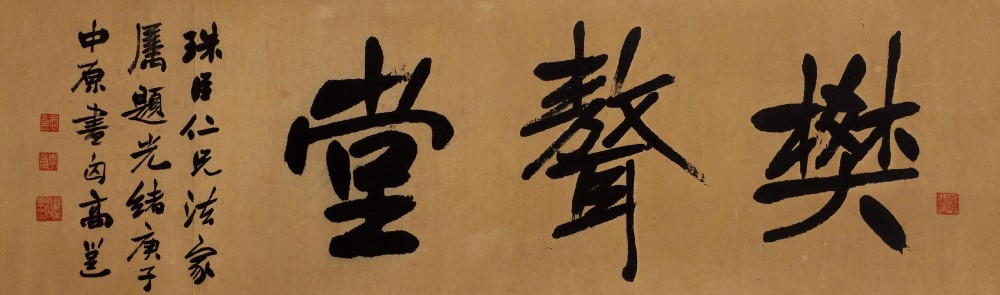 樊聱堂
珠臣仁兄法家
屬題光緒庚子
中原書匃高邕